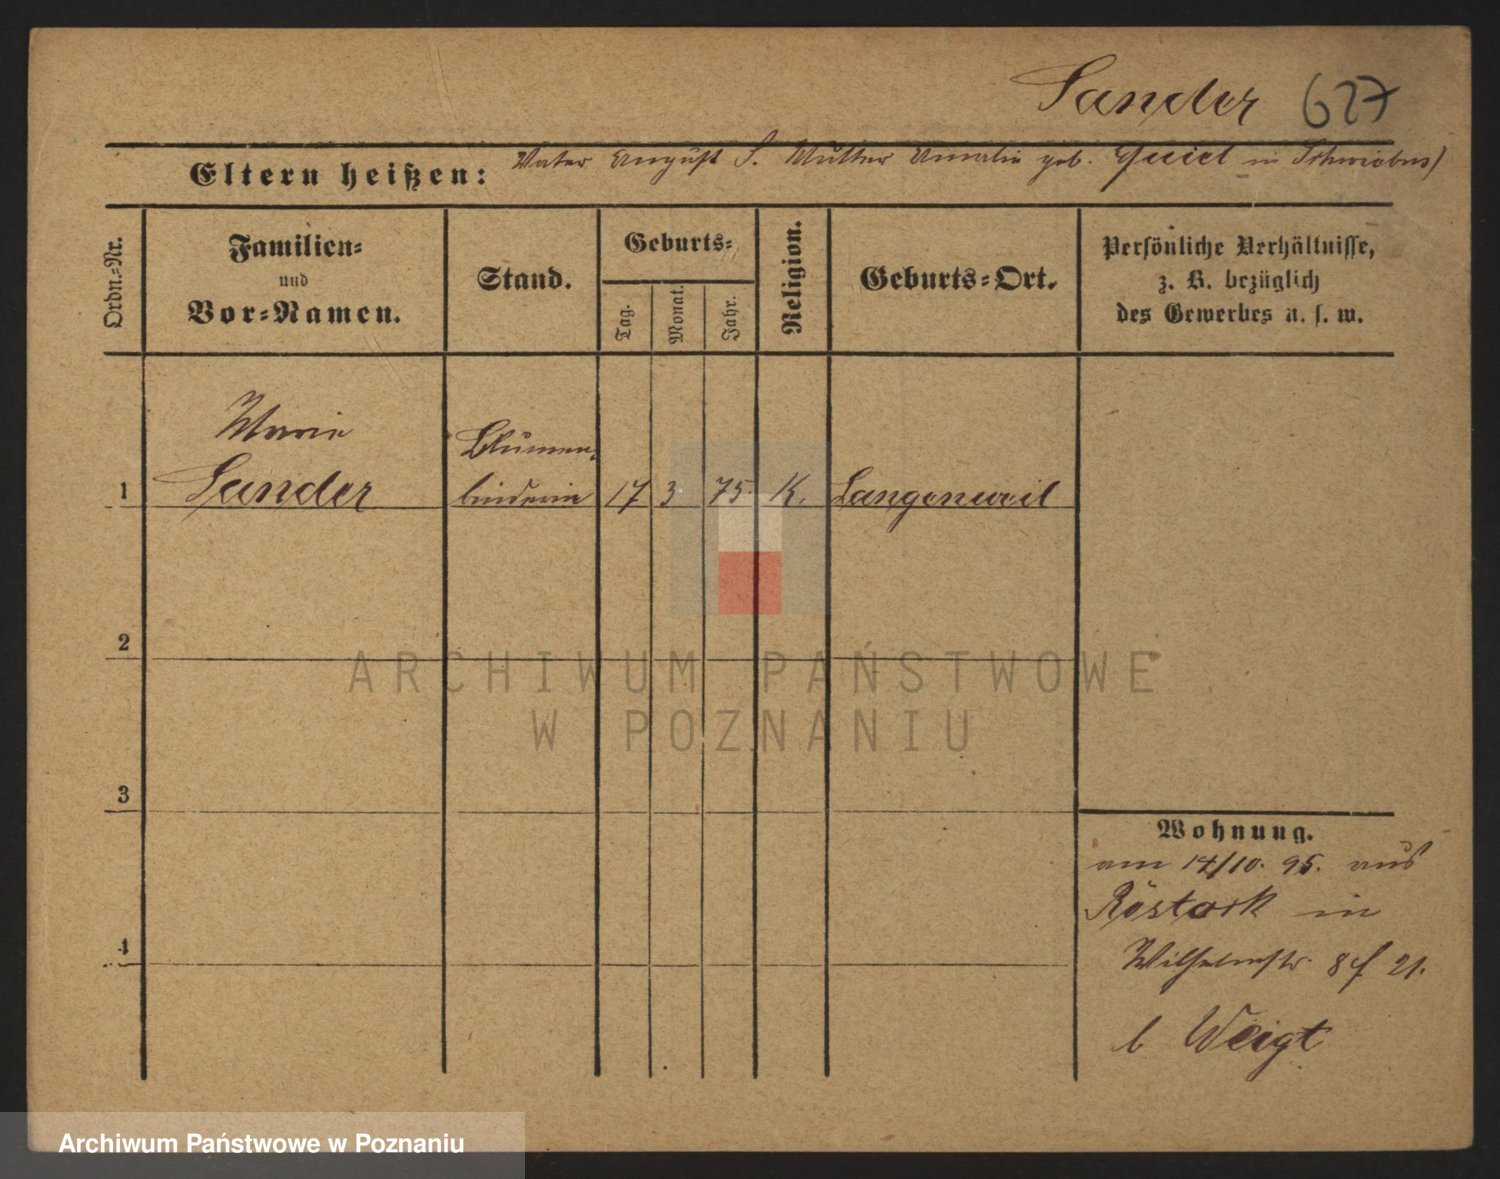 Sander 627
Eltern heißen: Vater August S. Mutter Amalie geb. in Schwiebus)
Ordn.-Nr.
Familien-
und
Vor-Namen.
Stand.
Geburts-
Tag.
Monat.
Jahr.
Religion.
Geburts-Ort.
Persönliche Verhältnisse,
z. B. bezüglich
des Gewerbes u. s. w.
Marie
Blumen-
1 Sander binderin 17 3 75. K. Langenweil
2
3
4
Wohnung.
am 14/10. 95. aus
Rostock in
Wilhelmstr. 8 21.
b Weigt
ARCHIWUM PAŃSTWOWE
W POZNANIU
Archiwum Państwowe w Poznaniu